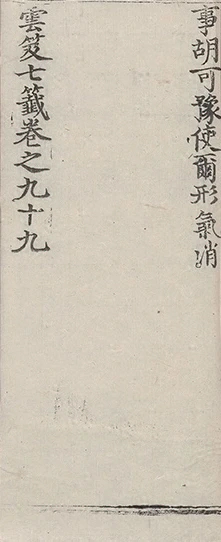 事胡可豫使爾形氣消
雲笈七籤卷之九十九